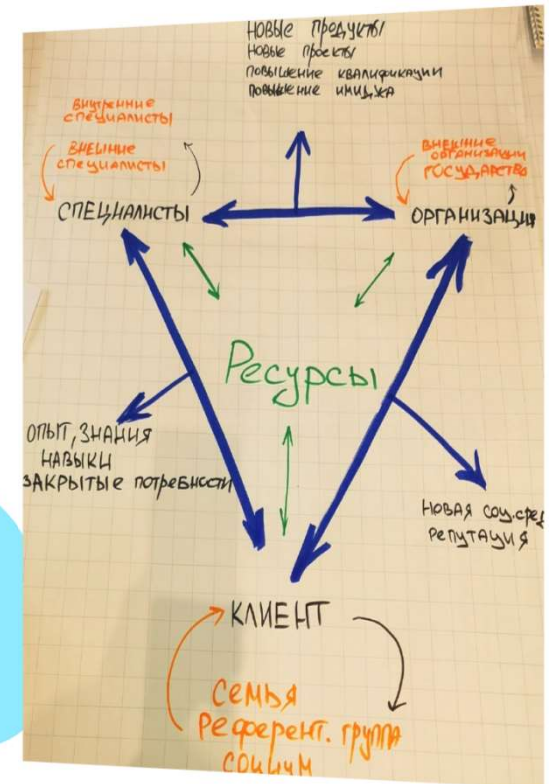 НОВЫЕ ПРОДУКТЫ
НОВЫЕ ПРОЕКТЫ
ПОВЫШЕНИЕ КВАЛИФИКАЦИИ
ПОВЫШЕНИЕ ИМИДЖА
ВНУТРЕННИЕ
СПЕЦИАЛИСТЫ
ВНЕШНИЕ
СПЕЦИАЛИСТЫ
ВНЕШНИЕ
ОРГАНИЗАЦИИ
ГОСУДАРСТВО
СПЕЦИАЛИСТЫ
ОРГАНИЗАЦИЯ
Ресурсы
ОПЫТ, ЗНАНИЯ
НАВЫКИ
ЗАКРЫТЫЕ ПОТРЕБНОСТИ
НОВАЯ СОЦ.СРЕД
РЕПУТАЦИЯ
КЛИЕНТ
СЕМЬЯ
РЕФЕРЕНТ. ГРУППА
СОЦИУМ